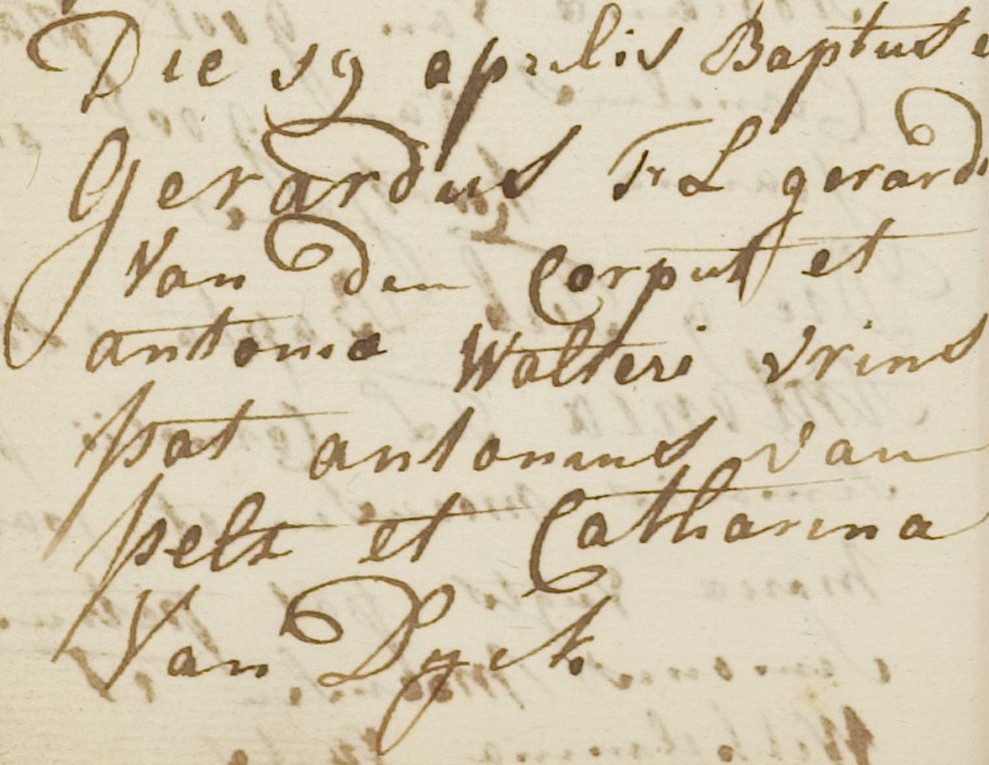 Die 19 aprilis Baptust e
Gerardus Fil gerardi
Van den Corput et
antonia Walteri Vrins
pat antonius van
pelt et Catharina
Van Dyck